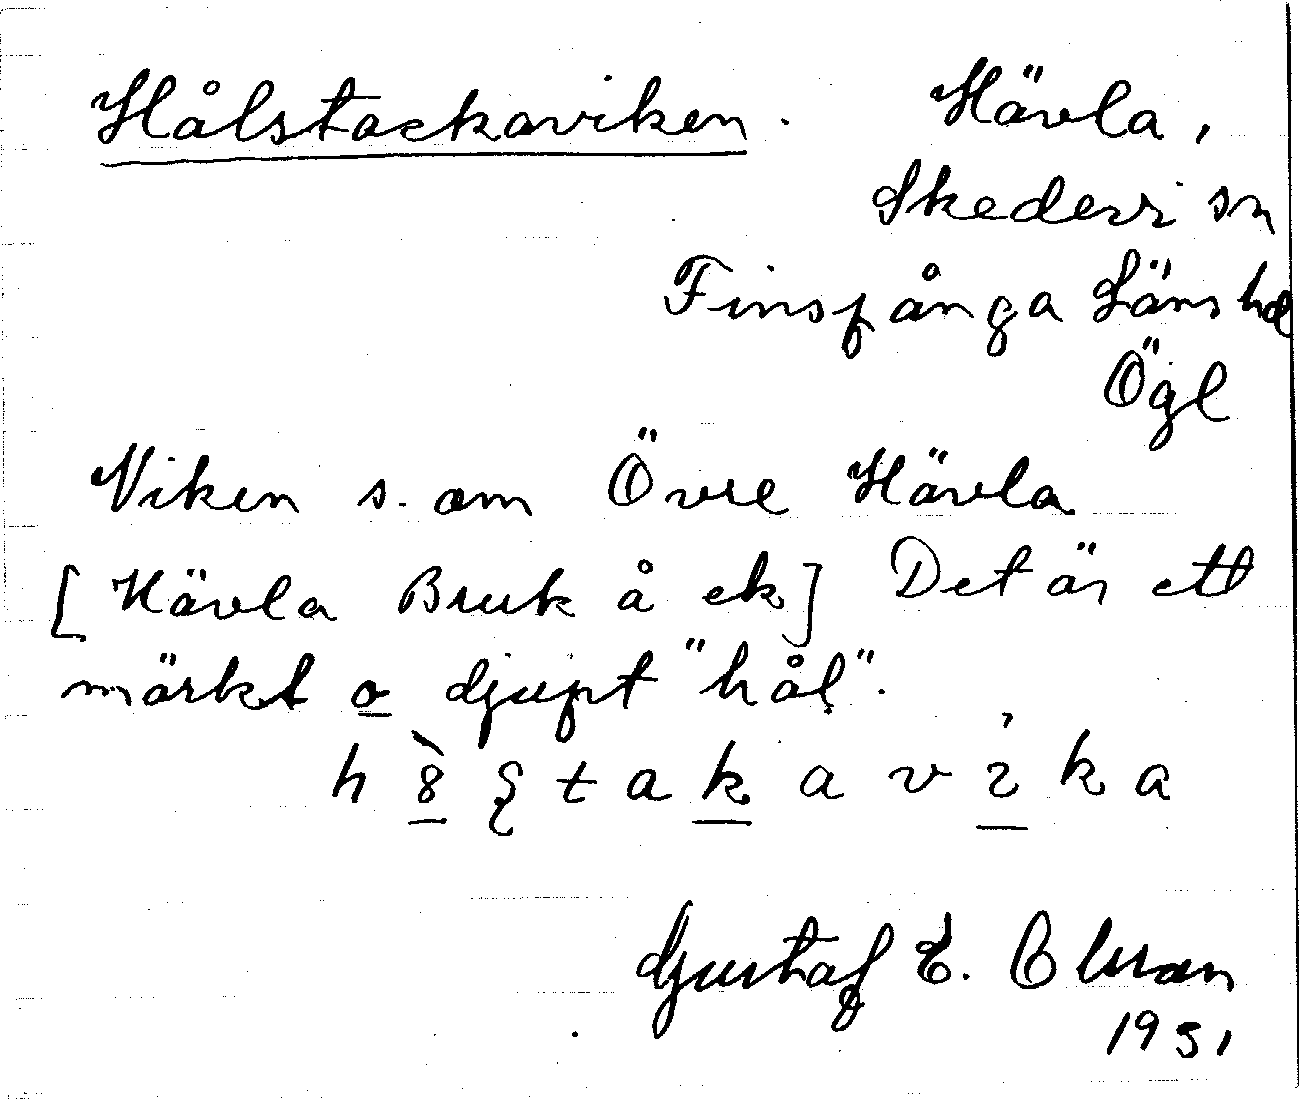 Hålstackaviken. Hävla,
Skedevi sn
Finspånga Läns hd
Ögl
Viken s. om Övre Hävla
[Hävla Bruk å ek] Det är ett
märkt o djupt "hål".
Gustaf E. Olsson
1951